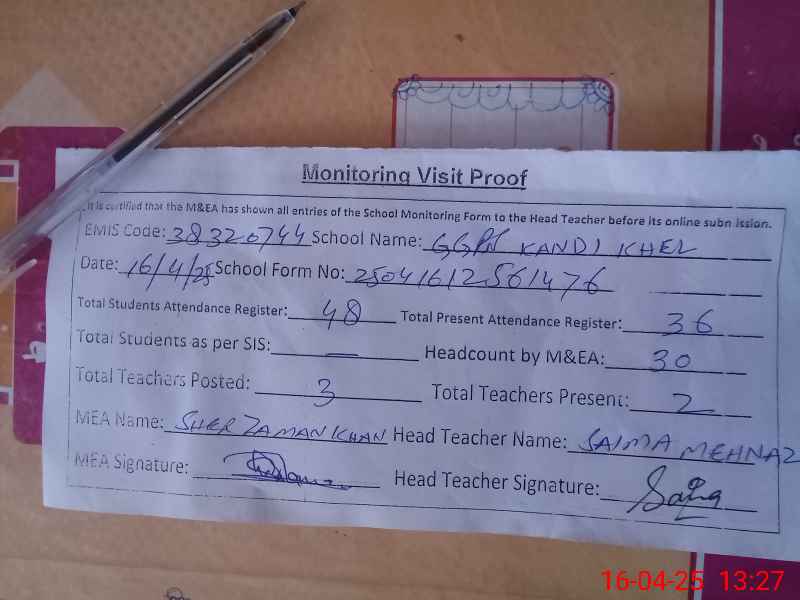 Monitoring Visit Proof
It is certified that the M&EA has shown all entries of the School Monitoring Form to the Head Teacher before its online submission.
EMIS Code: 38320744 School Name: GGPS KANDI KHEL
Date: 16/4/25 School Form No: 25041612561476
Total Students Attendance Register: 48 Total Present Attendance Register: 36
Total Students as per SIS: — Headcount by M&EA: 30
Total Teachers Posted: 3 Total Teachers Present: 2
MEA Name: SHER ZAMAN KHAN Head Teacher Name: SAIMA MEHNAZ
MEA Signature: Head Teacher Signature:
16-04-25 13:27